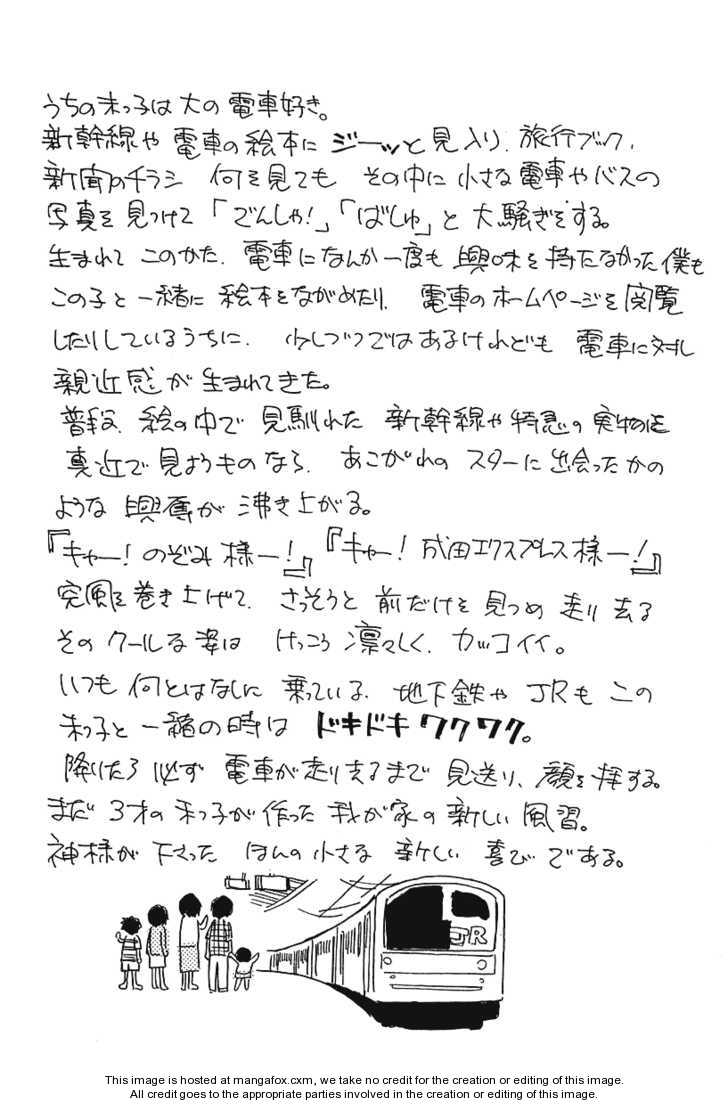 うちの末っ子は大の電車好き。
新幹線や電車の絵本にジーッと見入り、旅行ブック、
新聞のチラシ 何を見ても その中に小さな電車やバスの
写真を見つけて「でんしゃ!」「ばしゅ」と大騒ぎをする。
生まれてこのかた、電車になんか一度も興味を持たなかった僕も
この子と一緒に絵本をながめたり、電車のホームページを閲覧
したりしているうちに、少しづつではあるけれども 電車に対し
親近感が生まれてきた。
普段、絵の中で見馴れた 新幹線や特急の実物を
真近で見ようものなら、あこがれのスターに出会ったかの
ような興奮が沸き上がる。
『キャー!のぞみ様ー!』『キャー!成田エクスプレス様ー!』
突風を巻き上げて、さっそうと前だけを見つめ走り去る
そのクールな姿は けっこう凛々しく、カッコイイ。
いつも何とはなしに乗っている、地下鉄やJRもこの
末っ子と一緒の時は ドキドキワクワク。
降りたら必ず 電車が走り去るまで見送り、顔を拝する。
まだ3才の末っ子が作った我が家の新しい風習。
神様が下さった ほんの小さな 新しい 喜びである。
JR
This image is hosted at mangafox.cxm, we take no credit for the creation or editing of this image.
All credit goes to the appropriate parties involved in the creation or editing of this image.